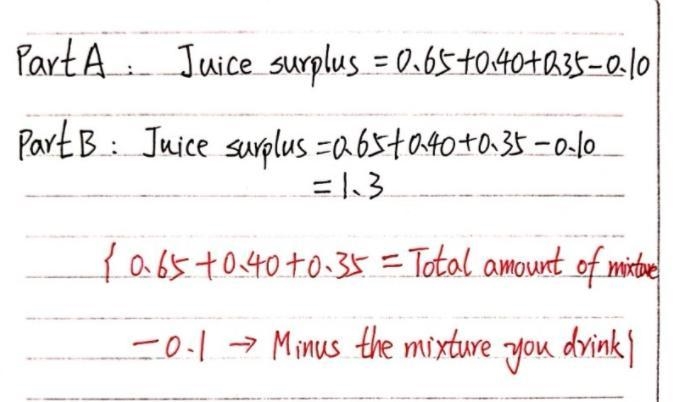 Part A : Juice surplus = 0.65+0.40+0.35-0.10
Part B : Juice surplus = 0.65+0.40+0.35-0.10
= 1.3
{ 0.65+0.40+0.35 = Total amount of mixture
-0.1 → Minus the mixture you drink}